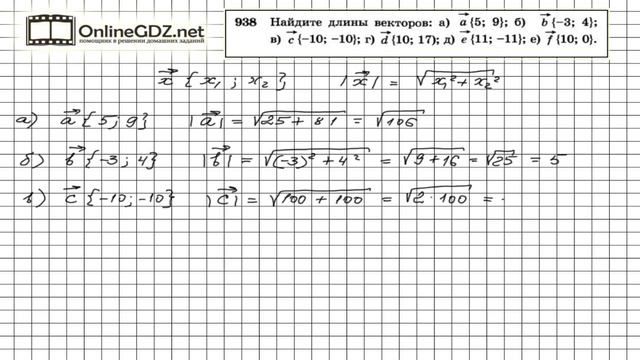 OnlineGDZ.net
помощник в решении домашних заданий
938 Найдите длины векторов: а) a{5; 9}; б) b{−3; 4};
в) c{−10; −10}; г) d{10; 17}; д) e{11; −11}; е) f{10; 0}.
x {x₁ ; x₂} |x| = √(x₁² + x₂²)
а) a {5 ; 9} |a| = √(25 + 81) = √106
б) b {-3 ; 4} |b| = √((-3)² + 4²) = √(9 + 16) = √25 = 5
в) c {-10 ; -10} |c| = √(100 + 100) = √(2 · 100) =